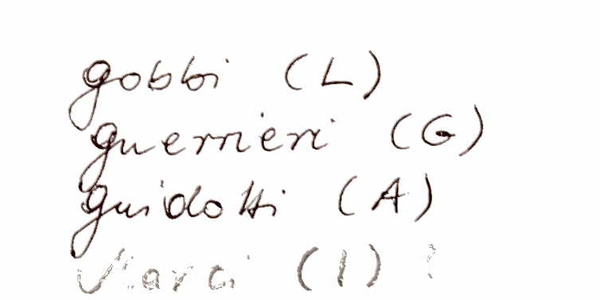 gobbi (L)
guerrieri (G)
guidotti (A)
(I) ?